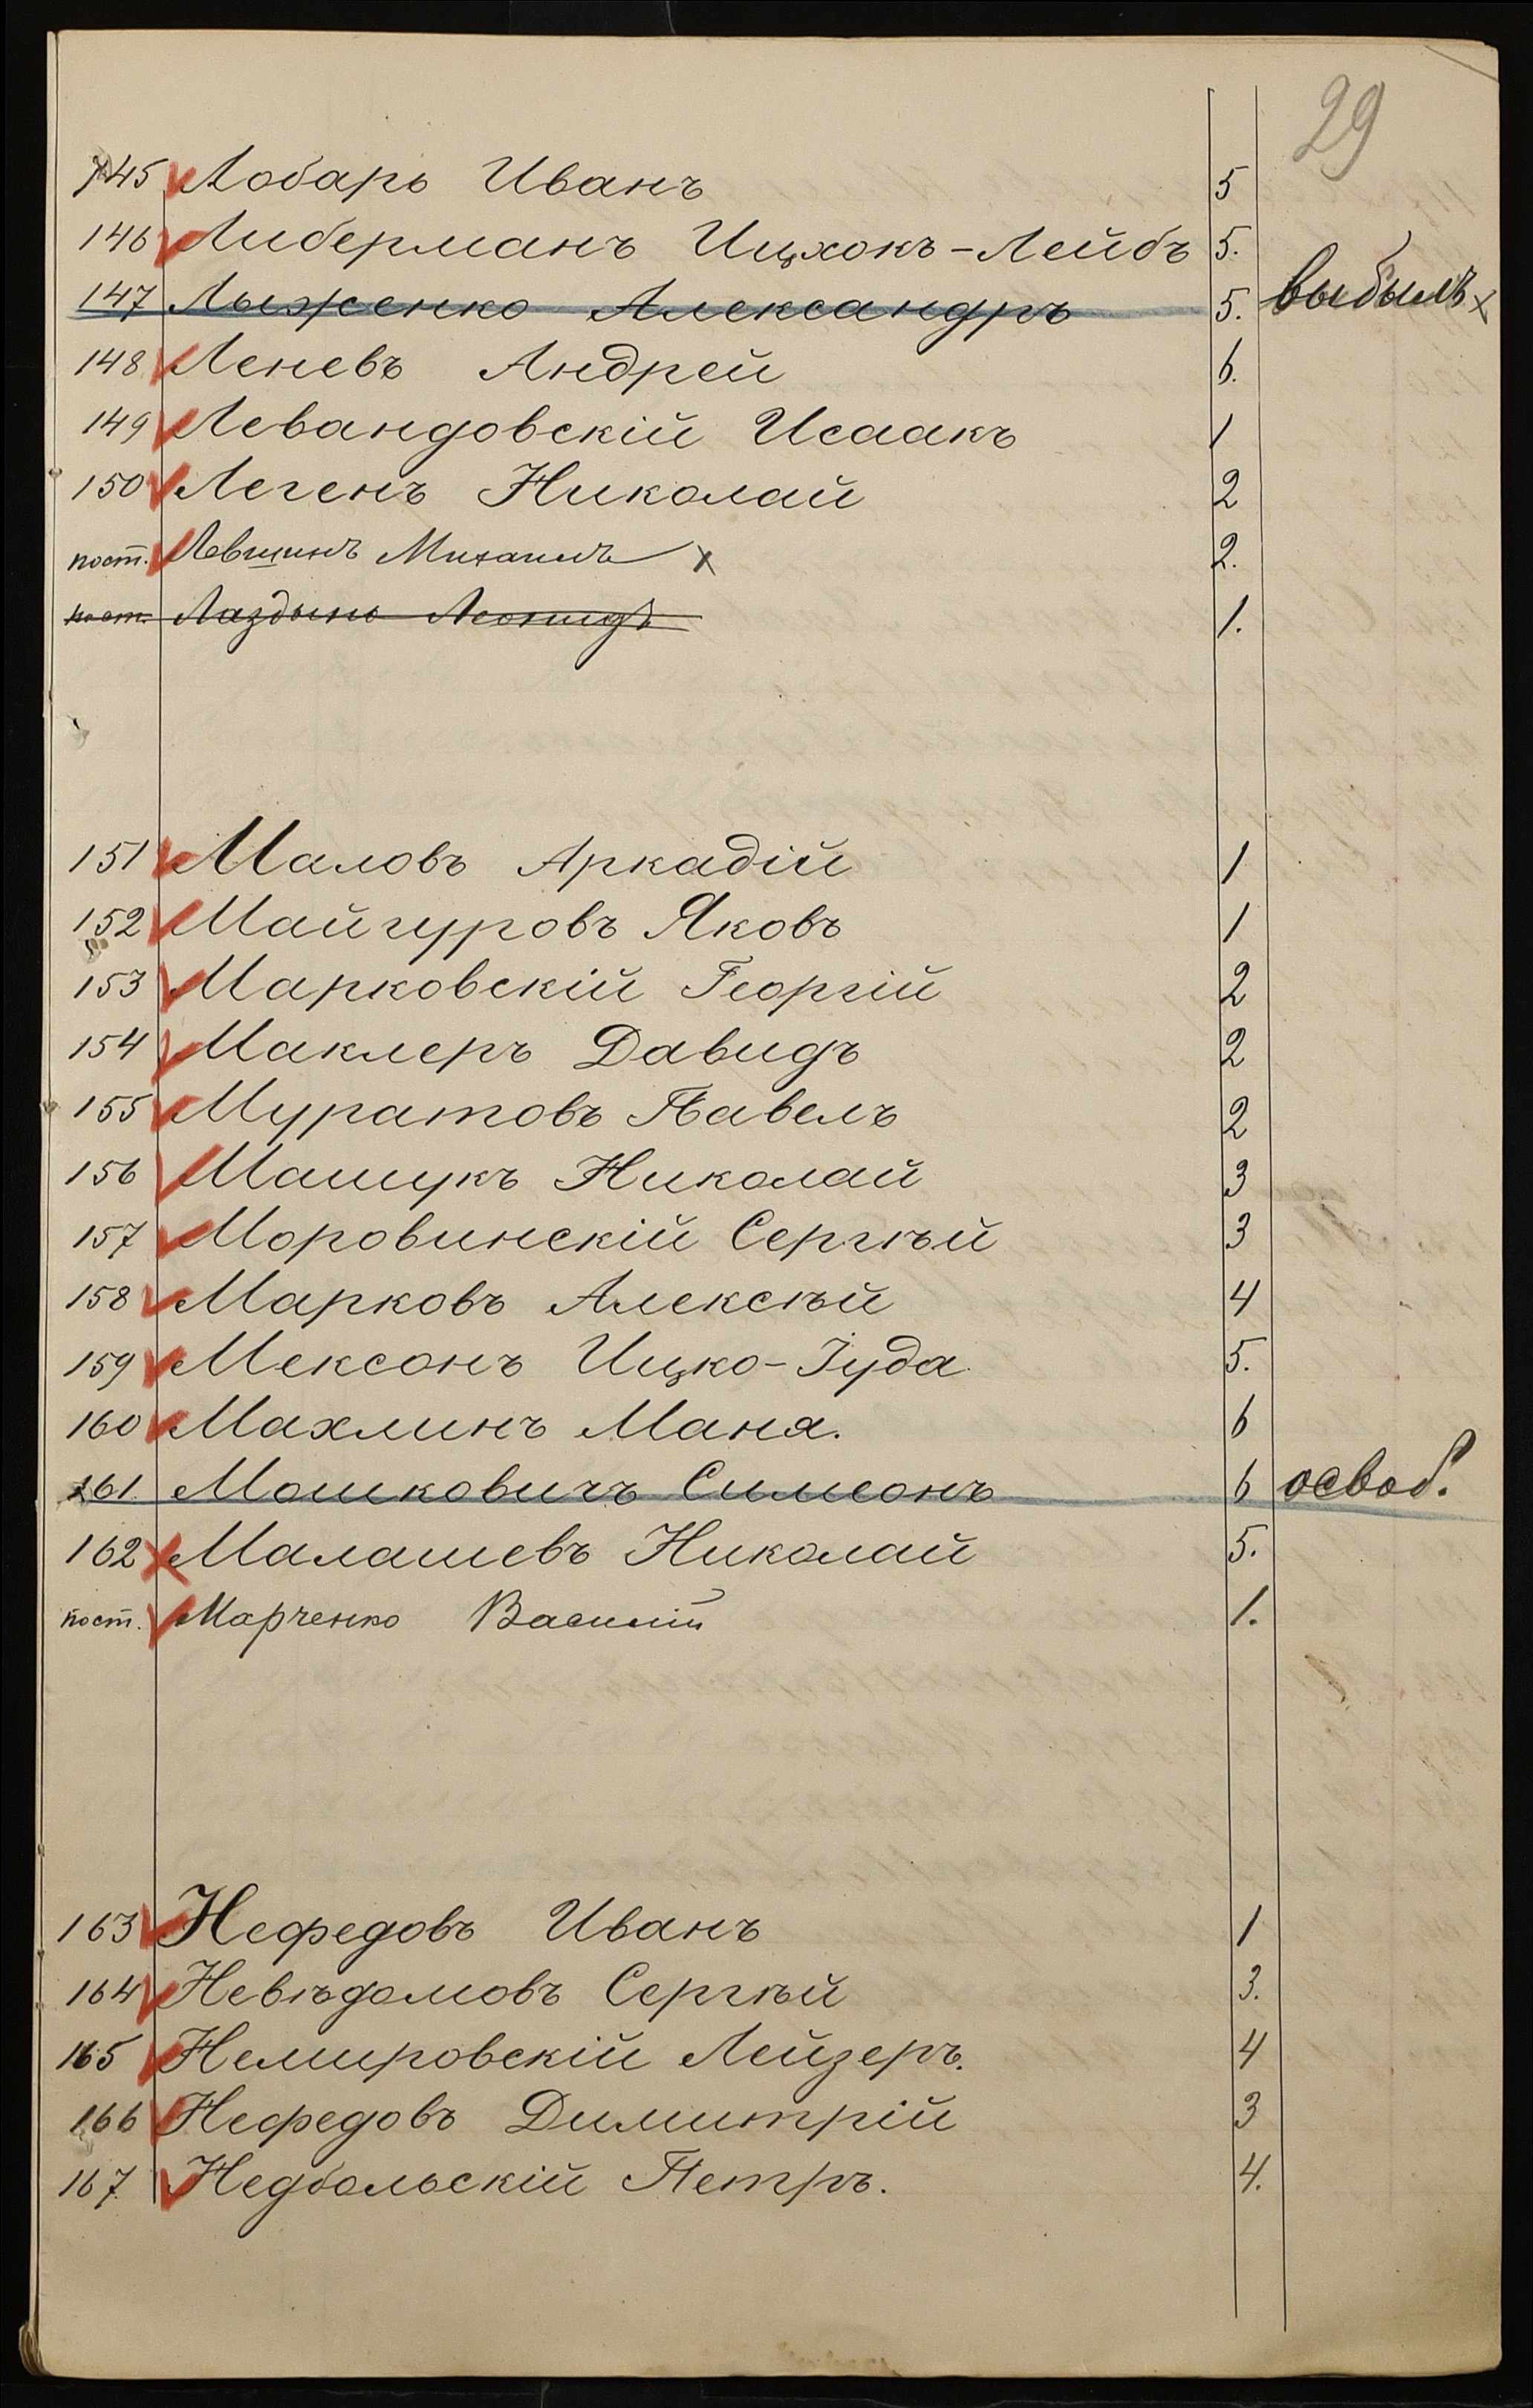 29
145 Лобарь Иванъ 5
146 Либерманъ Ицхокъ-Лейбъ 5.
147 Лыженко Александръ 5. выбылъ x
148 Леневъ Андрей 6.
149 Левандовскій Исаакъ 1
150 Легенъ Николай 2
пост. Левшинъ Михаилъ x 2.
пост. Лаздынь Леонидъ 1.
151 Маловъ Аркадій 1
152 Майгуровъ Яковъ 1
153 Марковскій Георгій 2
154 Маклеръ Давидъ 2
155 Муратовъ Павелъ 2
156 Машукъ Николай 3
157 Моровинскій Сергѣй 3
158 Марковъ Алексѣй 4
159 Мексонъ Ицко-Іуда 5.
160 Махлинъ Маня. 6
161 Мошковичъ Симеонъ 6 освоб.
162 Малашевъ Николай 5.
пост. Марченко Василій 1.
163 Нефедовъ Иванъ 1
164 Невѣдомовъ Сергѣй 3.
165 Немировскій Лейзеръ. 4
166 Нефедовъ Димитрій 3
167 Недбальскій Петръ. 4.